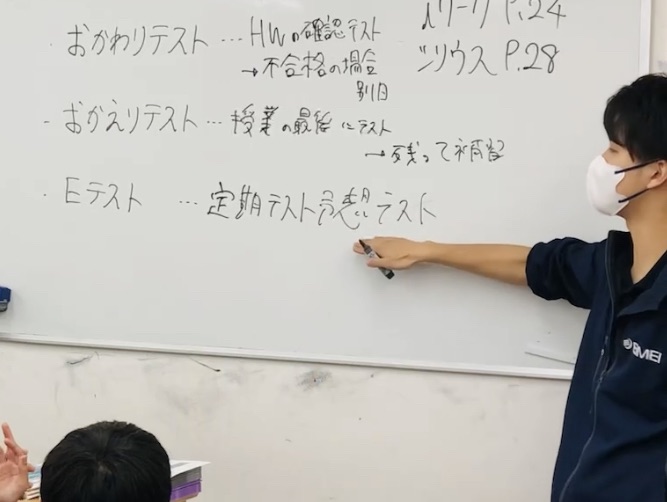 ・おかわりテスト … HWの確認テスト
→不合格の場合
別日
・おかえりテスト … 授業の最後にテスト
→残って補習
・Eテスト … 定期テスト予想テスト
ワーク P.24
シリウス P.28